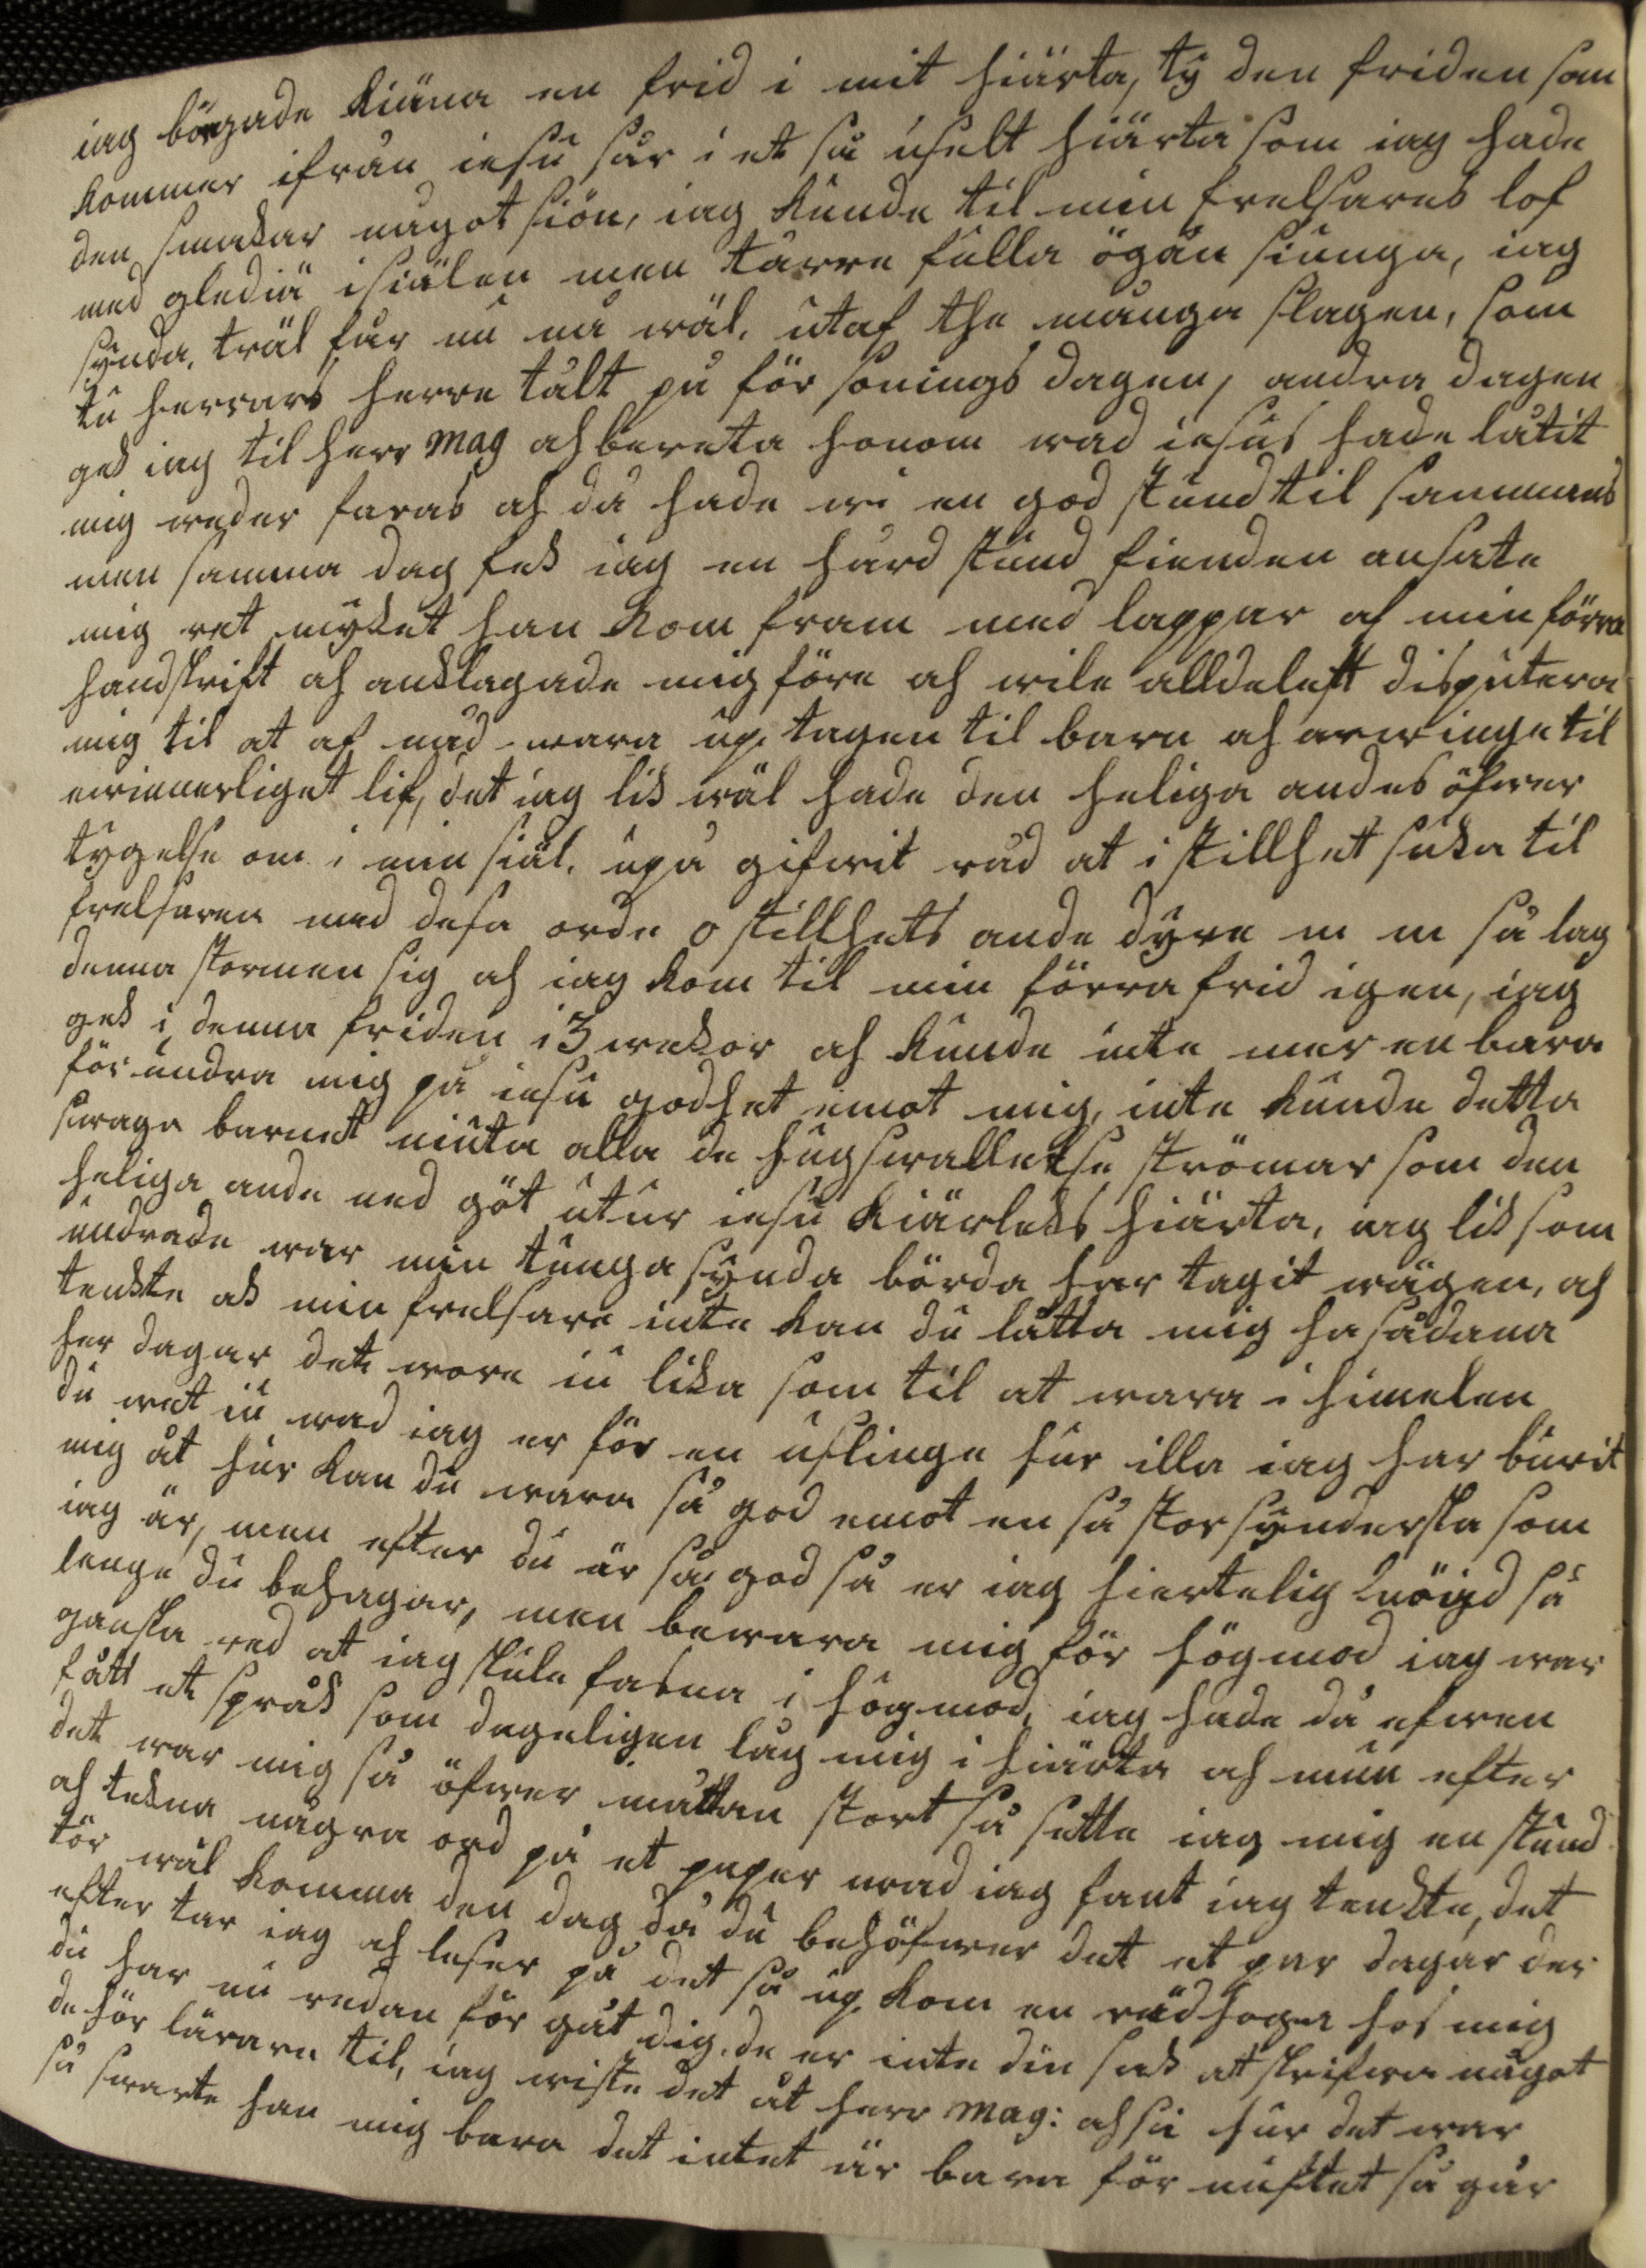 iag börgade kiäna en frid i mit hiärta, ty den friden som
kommer ifrån iesu sår i et så uselt hiärta som iag hade
den smakar något siön, iag kunde til min frelsares lof
med gledia i siälen men tårre fulla ögån siunga, iag
synda, träl får nu nå wäl, utaf the många slagen, som
tu herrars herre tålt på för sonings dagen, andra dagen
gek iag til herr Mag ah bereta honom wad iesus hade låtit
mig weder faras ah då hade wi en god stund til sammans
men samma dag fek iag en hård stund fienden ansate
mig ret myket han kom fram med lappar af min förra
handskrift ah anklagade mig före ah wile alldelest disputera
mig til at af nåd wara up tagen til barn ah arwinge til
ewinnerliget lif, det iag lik wäl hade den heliga andes öfwer
tygelse om i min siäl, upå gifwit råd at i stillhet suka til
frelsaren med desa orde o stillhets ande dyre m m så lag
denna stormen sig ah iag kom til min förra frid igen, iag
gek i denna friden i 3 wekor ah kunde inte mer en bara
för undra mig på iesu godhet emot mig, inte kunde detta
swaga barnet niuta alla de hugswallelse strömar som den
heliga ande ned göt utur iesu kiärleks hiärta, iag lik som
undrade war min tunga synda börda har tagit wägen, ah
tenkte ak min frelsare inte kan du låtta mig ha sådana
her dagar det wore iu lika som til at wara i himelen
du wet iu wad iag er för en uslinge hur illa iag har burit
mig åt hur kan du wara så god emot en så stor synderska som
iag är, men efter du är så god så er iag hiertelig nöigd så
lenge du behagar, men bewara mig för högmod iag war
ganska red at iag skule fasna i högmod, iag hade då efwen
fått et språk som dageligen låg mig i hiärta ah mun efter
det war mig så öfwer måttan stort så sette iag mig en stund
ah tekna några ord på et paper wad iag fant iag tenkte, det
tör wäl komma den dag då du behöfwer det et par dagar der
efter tar iag ah leser på det så up kom en rädhoga hos mig
du har nu redan för gåt dig, de er inte din sak at skrifwa något
de hör lärare til, iag wiste det åt herr Mag: ah sa hur det war
så swarte han mig bara det intet är bara för nuftet så går